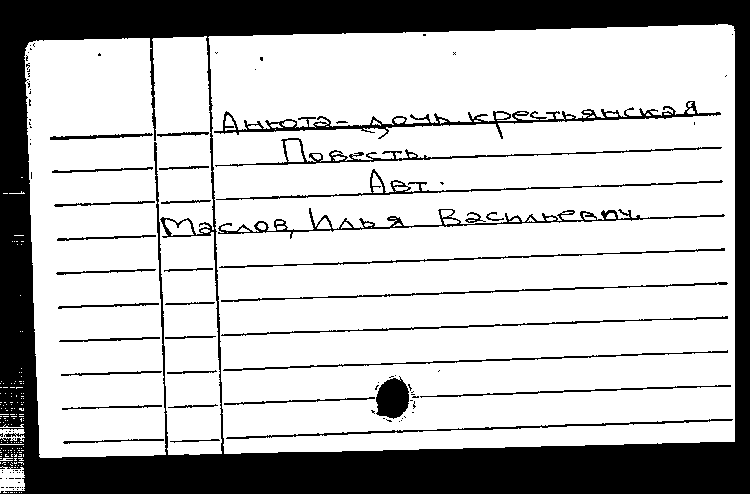 Анюта - дочь крестьянская
Повесть.
Авт.
Маслов, Илья Васильевич.